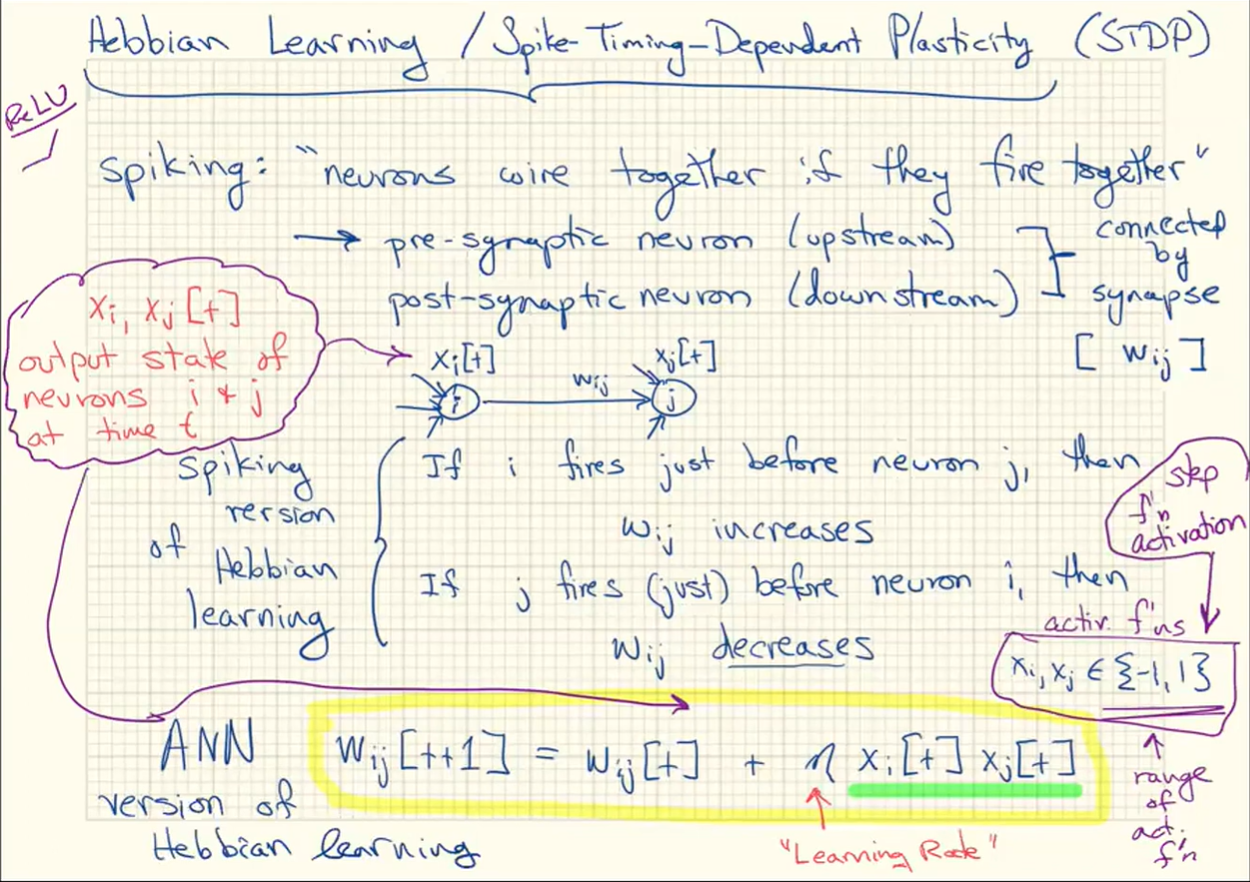 Hebbian Learning / Spike-Timing-Dependent Plasticity (STDP)
ReLU
spiking: "neurons wire together if they fire together"
→ pre-synaptic neuron (upstream)
post-synaptic neuron (downstream)
connected
by
synapse
[ wij ]
xi, xj [t]
output state of
neurons i & j
at time t
xi[t]
xj[t]
wij
i
j
spiking
version
of Hebbian
learning
If i fires just before neuron j, then
wij increases
If j fires (just) before neuron i, then
wij decreases
step
f'n
activation
activ. f'ns
xi, xj ∈ {-1, 1}
range
of
act.
f'n
ANN
version of
Hebbian learning
wij [t+1] = wij [t] + η xi[t] xj[t]
"Learning Rate"